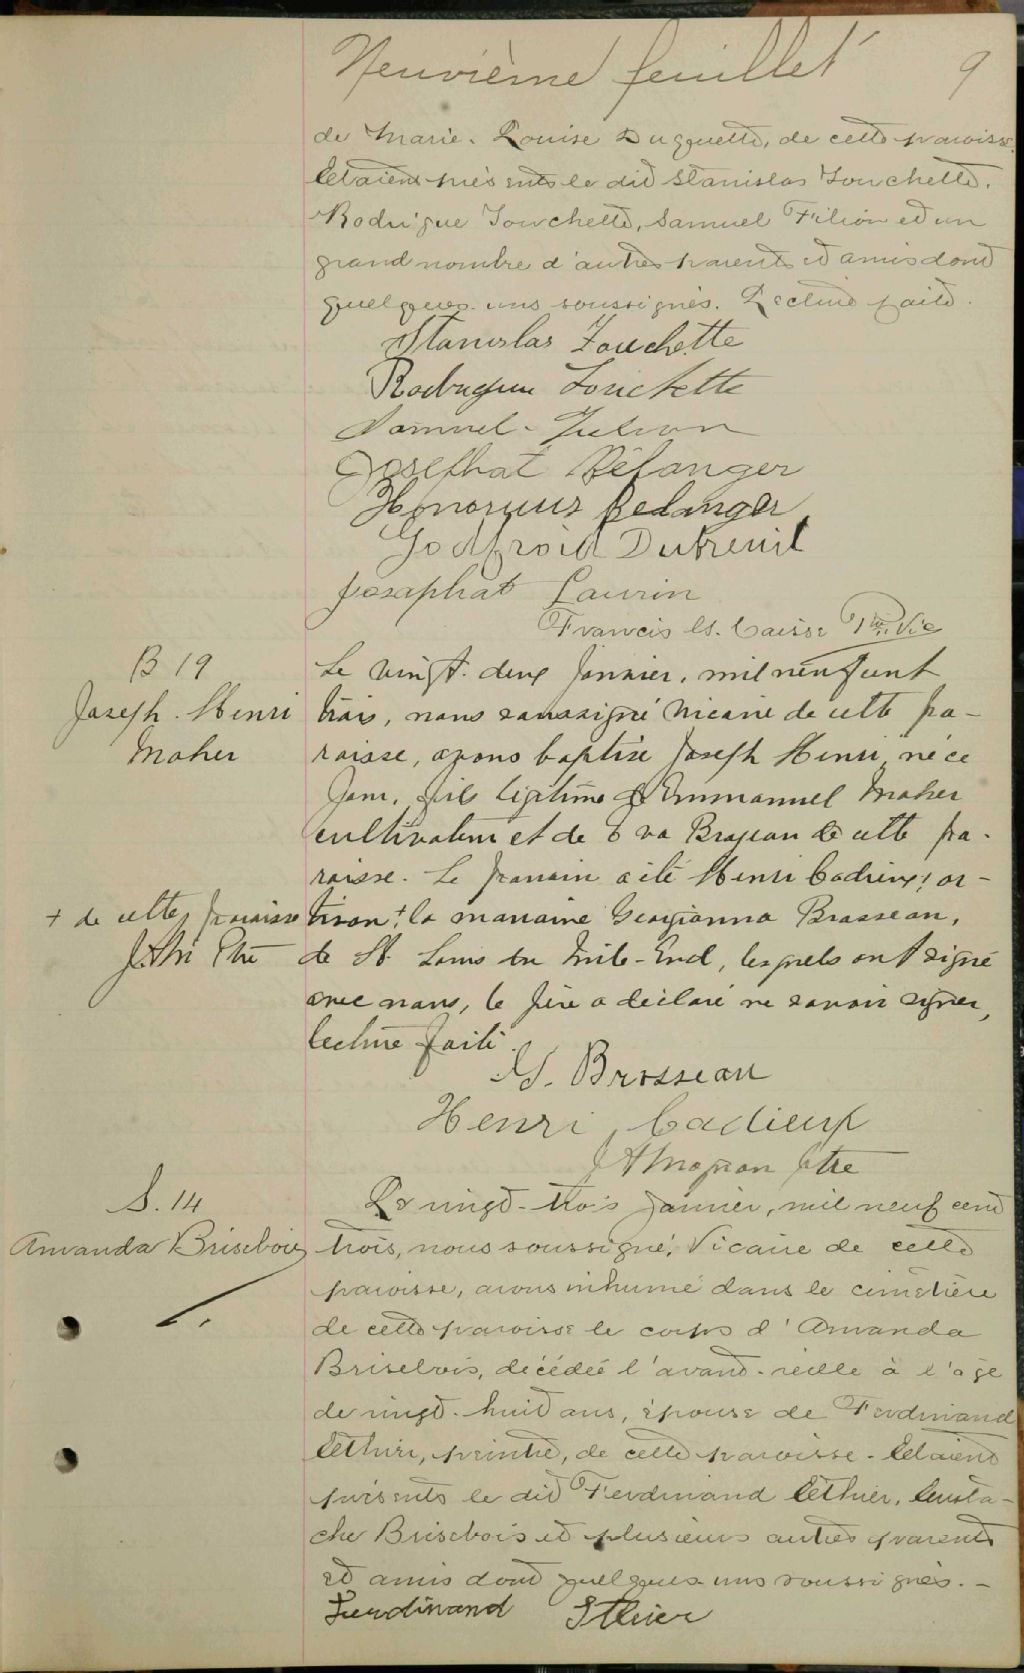 Neuvième feuillet 9
de Marie-Louise Duquette, de cette paroisse.
Etaient présents le dit Stanislas Touchette,
Rodrigue Touchette, Samuel Filion et un
grand nombre d'autres parents et amis dont
quelques-uns soussignés. Lecture faite.
Stanislas Touchette
Rodrigue Touchette
Samuel Filion
Josephat Bélanger
Honorius Belanger
Godfroid Dutreuil
Josaphat Laurin
Francis Ls. Caisse Ptre Vic
B 19
Joseph-Henri
Maher
Le vingt-deux janvier, mil neuf cent
trois, nous soussigné vicaire de cette pa-
roisse, avons baptisé Joseph Henri, né ce
jour, fils légitime d'Emmanuel Maher
cultivateur et de Eva Brazeau de cette pa-
roisse. Le parrain a été Henri Cadieux, ar-
+ de cette paroisse
tisan + la marraine Georgianna Brosseau,
de St Louis du Mile-End, lesquels ont signé
avec nous, le père a déclaré ne savoir signer,
lecture faite.
G. Brosseau
Henri Cadieux
Ptre
S. 14
Amanda Brisebois
Le vingt-trois janvier, mil neuf cent
trois, nous soussigné, Vicaire de cette
paroisse, avons inhumé dans le cimetière
de cette paroisse le corps d'Amanda
Brisebois, décédée l'avant-veille à l'age
de vingt-huit ans, épouse de Ferdinand
Ethier, peintre, de cette paroisse. Etaient
présents le dit Ferdinand Ethier, Eusta-
che Brisebois et plusieurs autres parents
et amis dont quelques-uns soussignés. -
Ferdinand Ethier